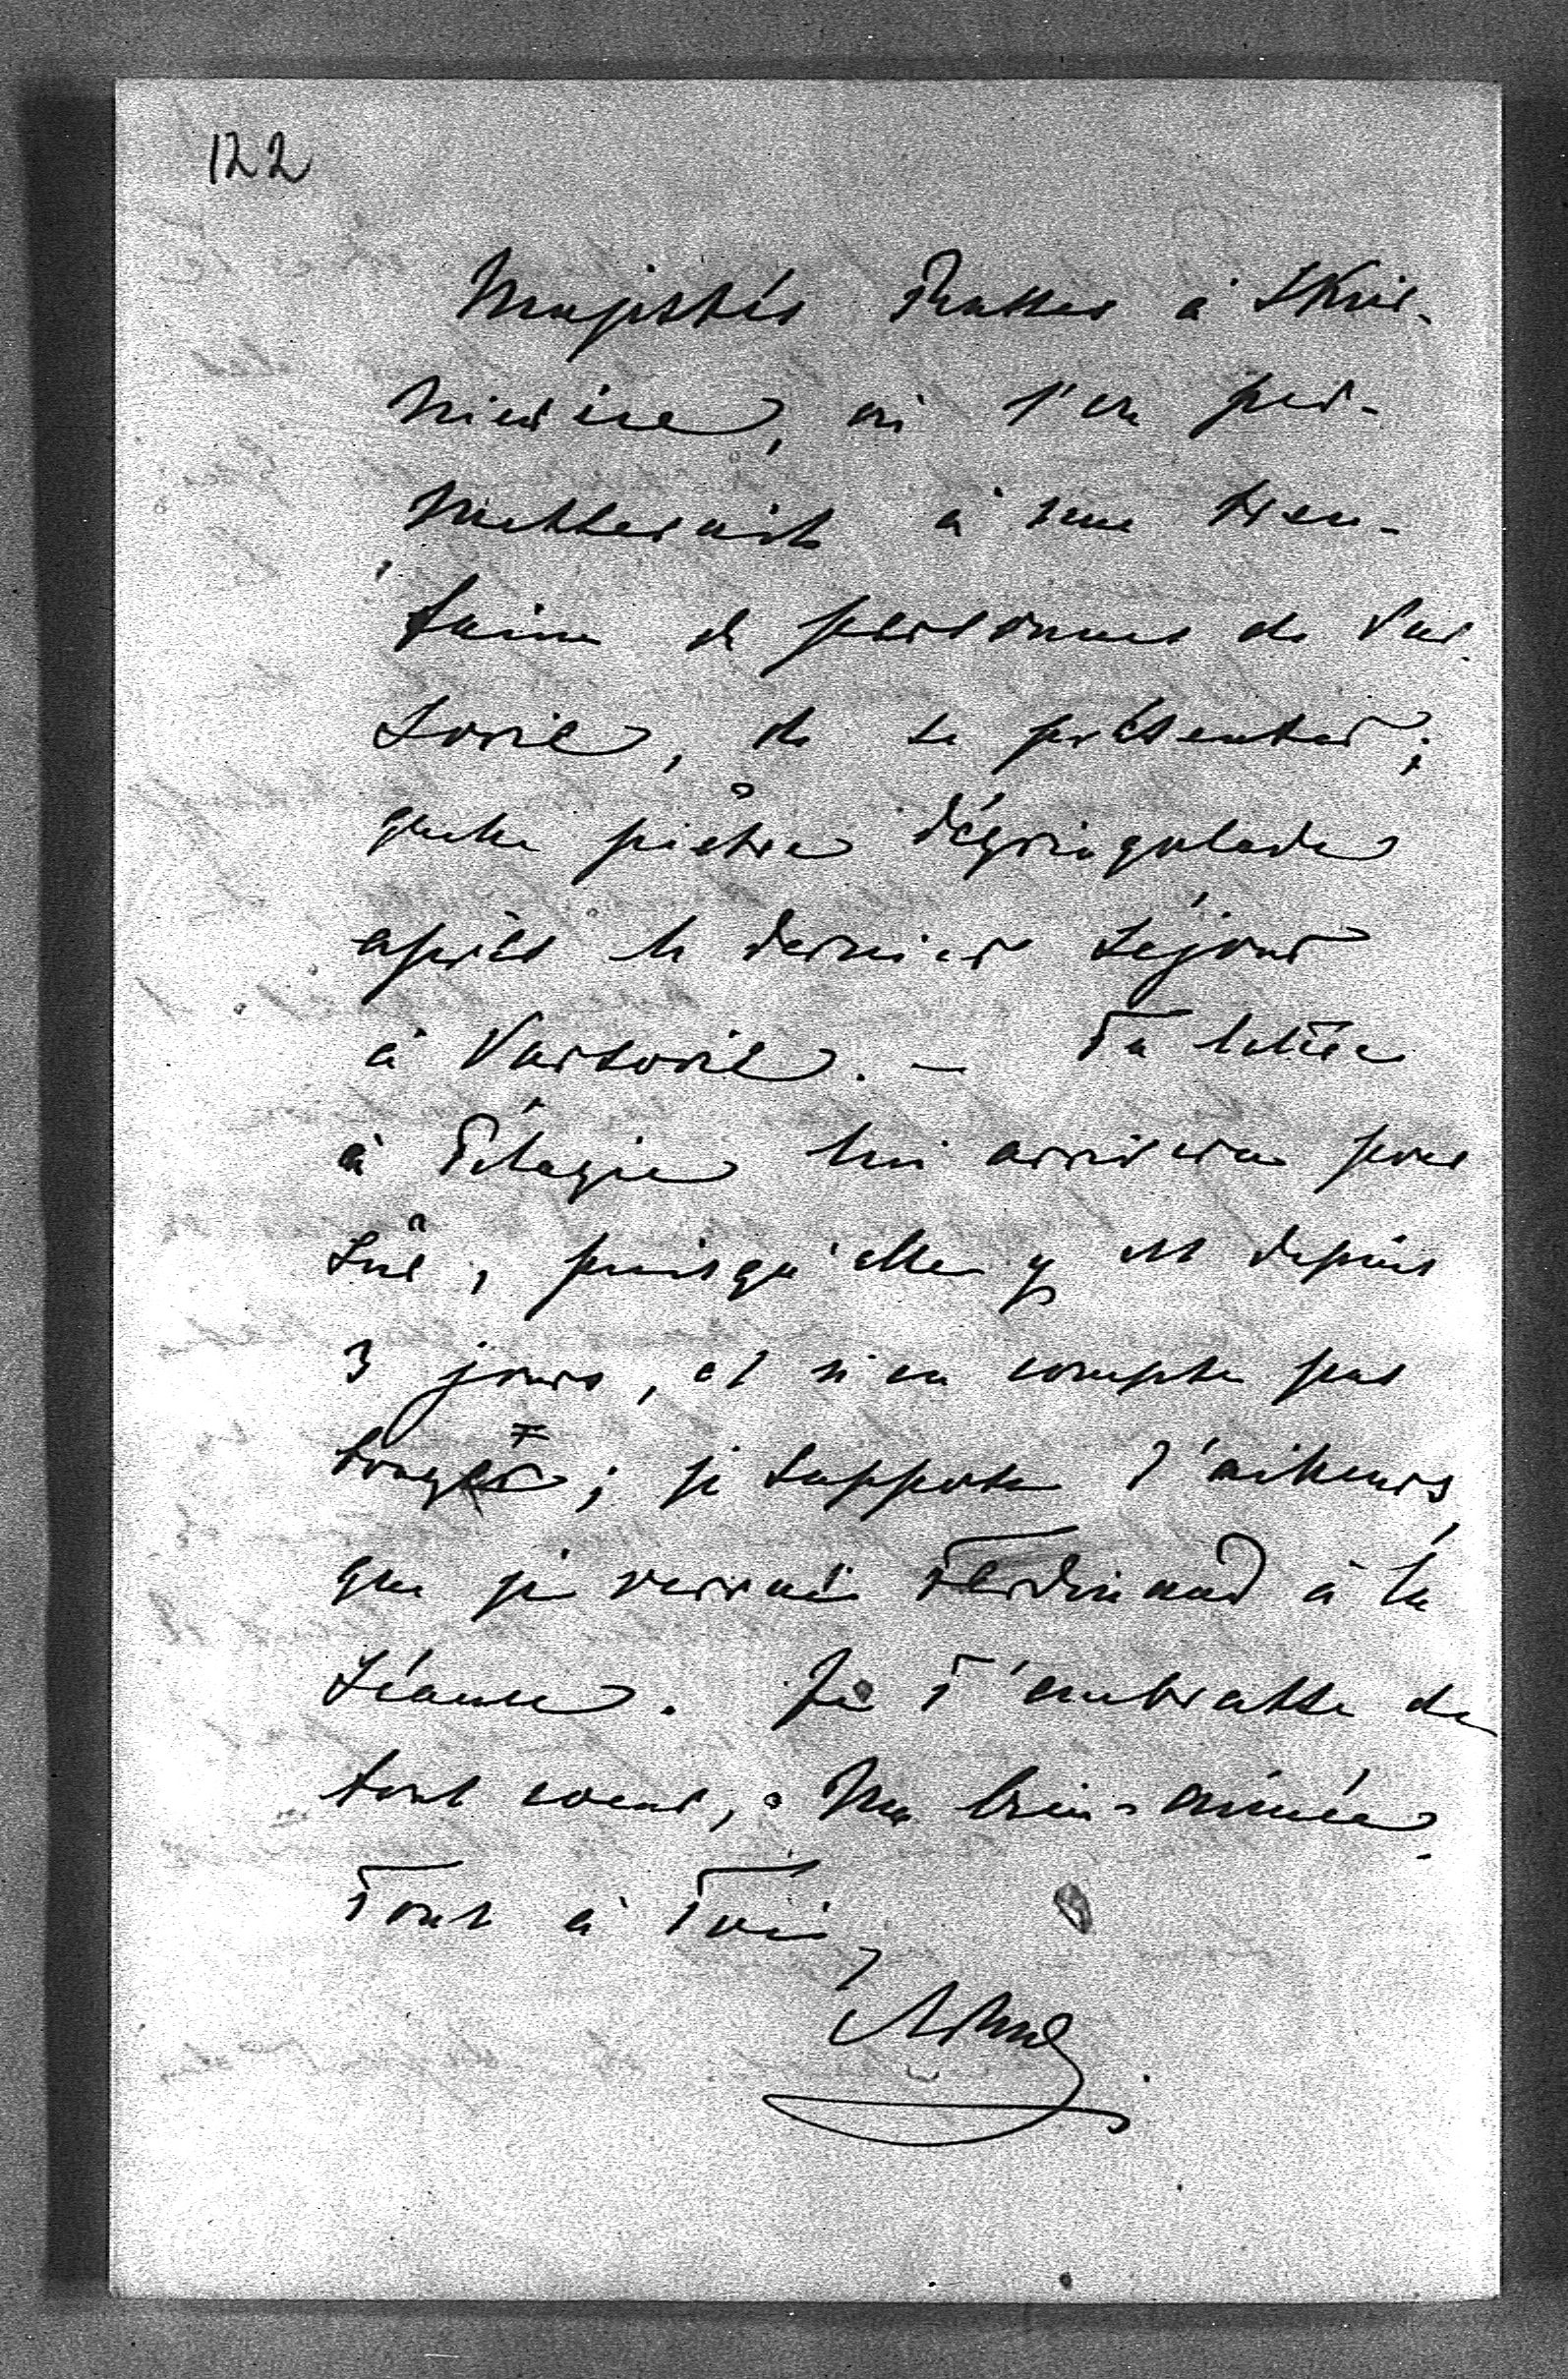 122
Majestés Russes à Skier-
niewice, où l'on per-
mettrait à une tren-
taine de personnes de Var-
sovie, de se présenter;
quelle piètre dégringolade
après le dernier séjour
à Varsovie. — Ta lettre
à Pélagie lui arrivera pour
sûr, puisqu'elle y est depuis
3 jours, et n'en compte pas
bouger; je suppose d'ailleurs,
que je verrai Ferdinand à la
séance. Je T'embrasse de
tout cœur, Ma bien-aimée.
Tout à Toi,